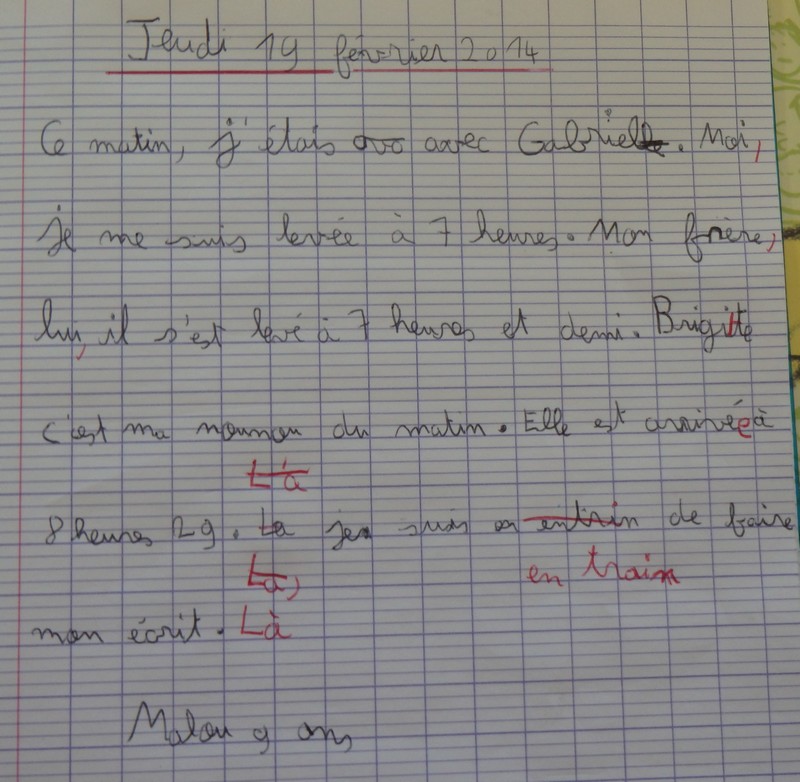 Jeudi 19 février 2014
Ce matin, j'étais avec Gabriel. Moi,
je me suis levée à 7 heures. Mon frère,
lui, il s'est levé à 7 heures et demi. Brigitte
c'est ma nounou du matin. Elle est arrivée à
Là
8 heures 29. La je suis en entrin de faire
La,
en train
mon écrit. Là
Malou 9 ans